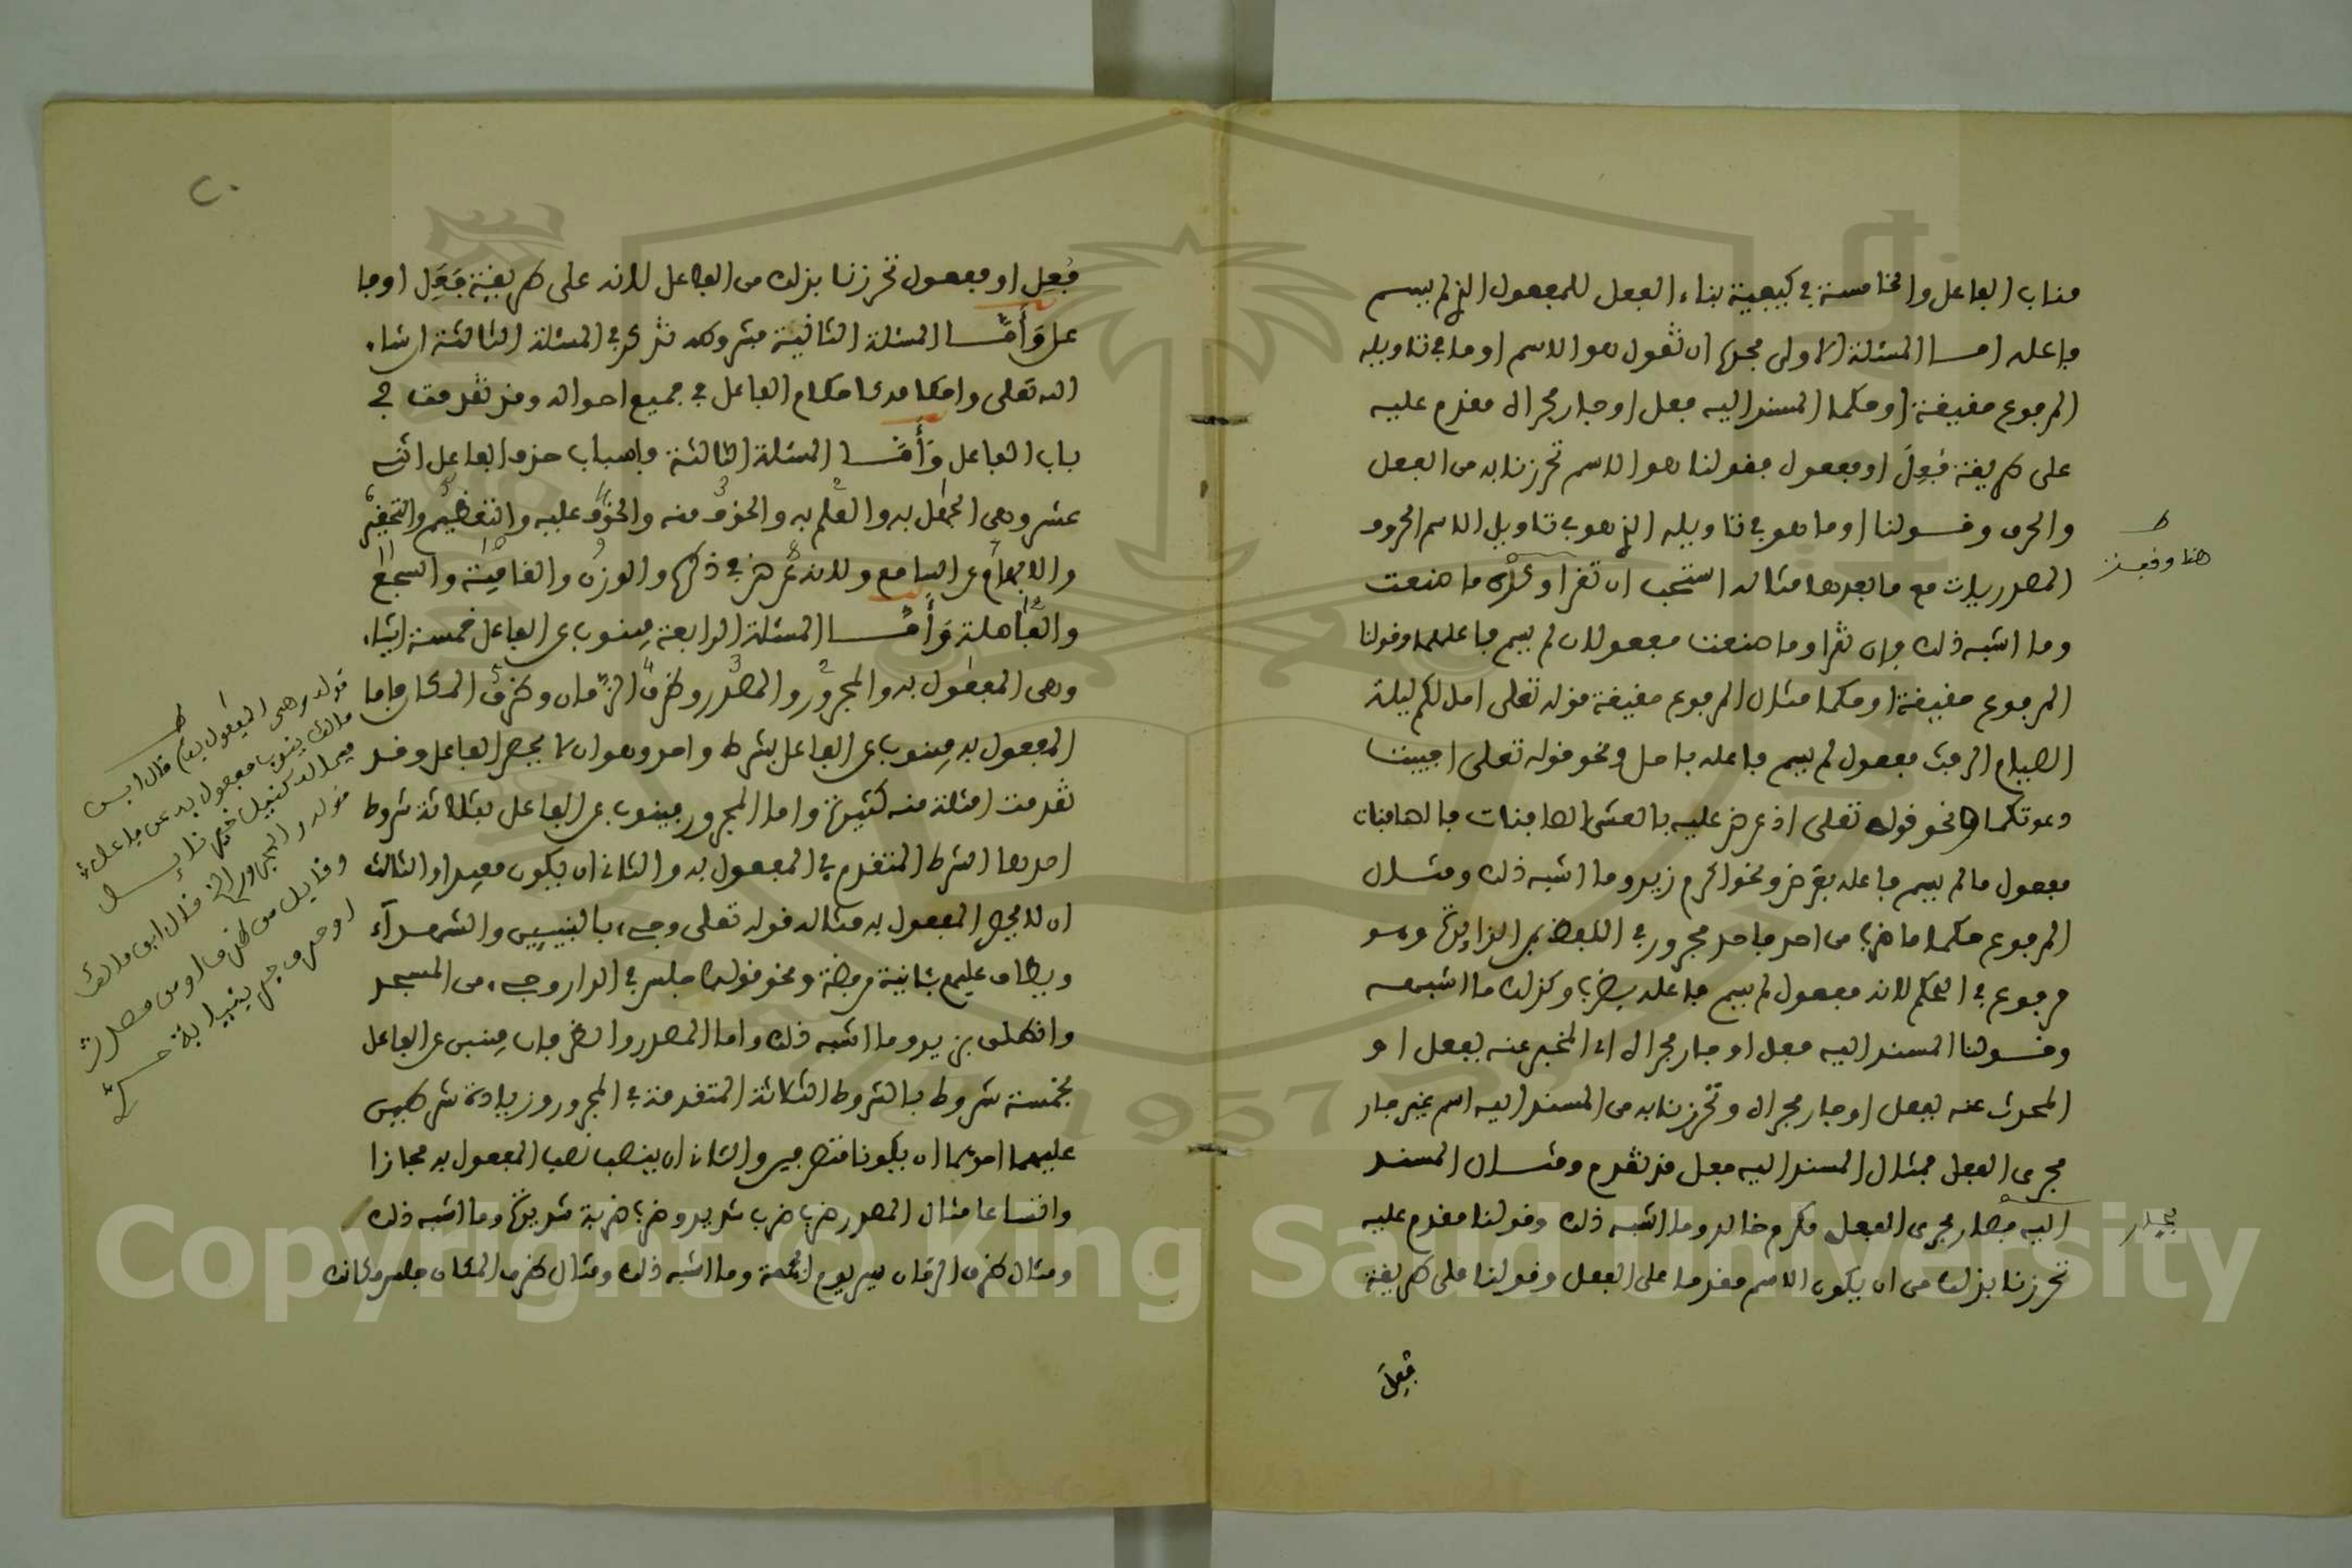 مناب الفاعل والخامسة في كيفية بناء الفعل للمفعول الذي لم يسم
فاعله امـا المسئلة الاولى فحدها ان تقول هو الاسم او ما في تاويله
المرفوع حقيقة او حكما المسند اليه فعل او جار مجراه مقدم عليه
على طريقة فُعِلَ او مفعول فقولنا هو الاسم تحرزنا به من الفعل
والحرف وقـولنا او ما هو في تاويله الذي هو في تاويل الاسم الحروف
المصدريات مع ما بعدها مثاله استحب ان تقرا وكُره ما صنعت
وما اشبه ذلك فان تقرا وما صنعت مفعولان لم يسم فاعلهما وقولنا
المرفوع حقيقة او حكما مثال المرفوع حقيقة قوله تعلى احل لكم ليلة
الصيام الرفث مفعول لم يسم فاعله باحل ونحو قوله تعلى اجيبت
دعوتكما ونحو قوله تعلى اذ عرض عليه بالعشي الصافنات فالصافنات
مفعول ما لم يسم فاعله بعرض ونحو اكرم زيد وما اشبه ذلك ومثـال
المرفوع حكما ما ضرب من احد فاحد مجرور في اللفظ بمن الزايدة وهو
مرفوع في الحكم لانه مفعول لم يسم فاعله بضرب وكذلك ما اشبهه
وقـولنا المسند اليه فعل او جار مجراه اي المخبر عنه بفعل او
المحدث عنه بفعل او جار مجراه وتحرزنا به من المسند اليه اسم غير جار
مجرى الفعل فمثال المسند اليه فعل قد تقدم ومثـال المسند
اليه جار مجرى الفعل مكرم خالد وما اشبه ذلك وقولنا مقدم عليه
تحرزنا بذلك من ان يكون الاسم مقدما على الفعل وقولنا على طريقة
فُعِلَ
ط
هنا وقف
٢٠
فُعِل او مفعول تحرزنا بذلك من الفاعل لانه على طريقة فَعَلَ او فا
عل وَأَمَّـا المسئلة الثانية فشروطه تذكر في المسئلة الثالثة ان شاء
الله تعلى واحكامه كاحكام الفاعل في جميع احواله وقد تقدمت في
باب الفاعل وَأَمَّـا المسئلة الثالثة فاسباب حذف الفاعل اثنى
عشر وهي الجهل به والعلم به والخوف منه والخوف عليه والتعظيم والتحقير
والابهام على السامع ولا غرض في ذكره والوزن والقافية والسجع
والفاصلة وَأَمَّـا المسئلة الرابعة فينوب عن الفاعل خمسة اشياء
وهي المفعول به والمجرور والمصدر وظرف الزمان وظرف المكان فاما
المفعول به فينوب عن الفاعل بشرط واحد وهو ان لا يحضر الفاعل وقـد
تقدمت امثلة منه كثيرة واما المجرور فينوب عن الفاعل بثلاثة شروط
احدها الشرط المتقدم في المفعول به والثاني ان يكون مفيدا والثالث
ان لا يحضر المفعول به مثاله قوله تعلى وجيء بالنبيين والشهـداء
ويطاف عليهم بئانية من فضة ونحو قولك جلس في الدار وجيء من المسجد
وانطلق بزيد وما اشبه ذلك واما المصدر والظرفان فينبن عن الفاعل
بخمسة شروط بالشروط الثلاثة المتقدمة في المجرور وزيادة شرطين
عليهما احدهما ان يكونا متصرفين والثاني ان ينصب نصب المفعول به مجازا
واتساعا مثال المصدر ضرب ضرب شديد وضرب ضربة شديدة وما اشبه ذلك
ومثال ظرف الزمان سير يوم الجمعة وما اشبه ذلك ومثال ظرف المكان جلس مكانك
قوله وهي المفعول به قال ابن
مالك ينوب مفعول به عن فاعل
فيما له كنيل خير نائـل
قوله والمجرور الخ قال ابن مالك
وقابل من ظرف او من مصدر
او حرف جر بنيابة حـر